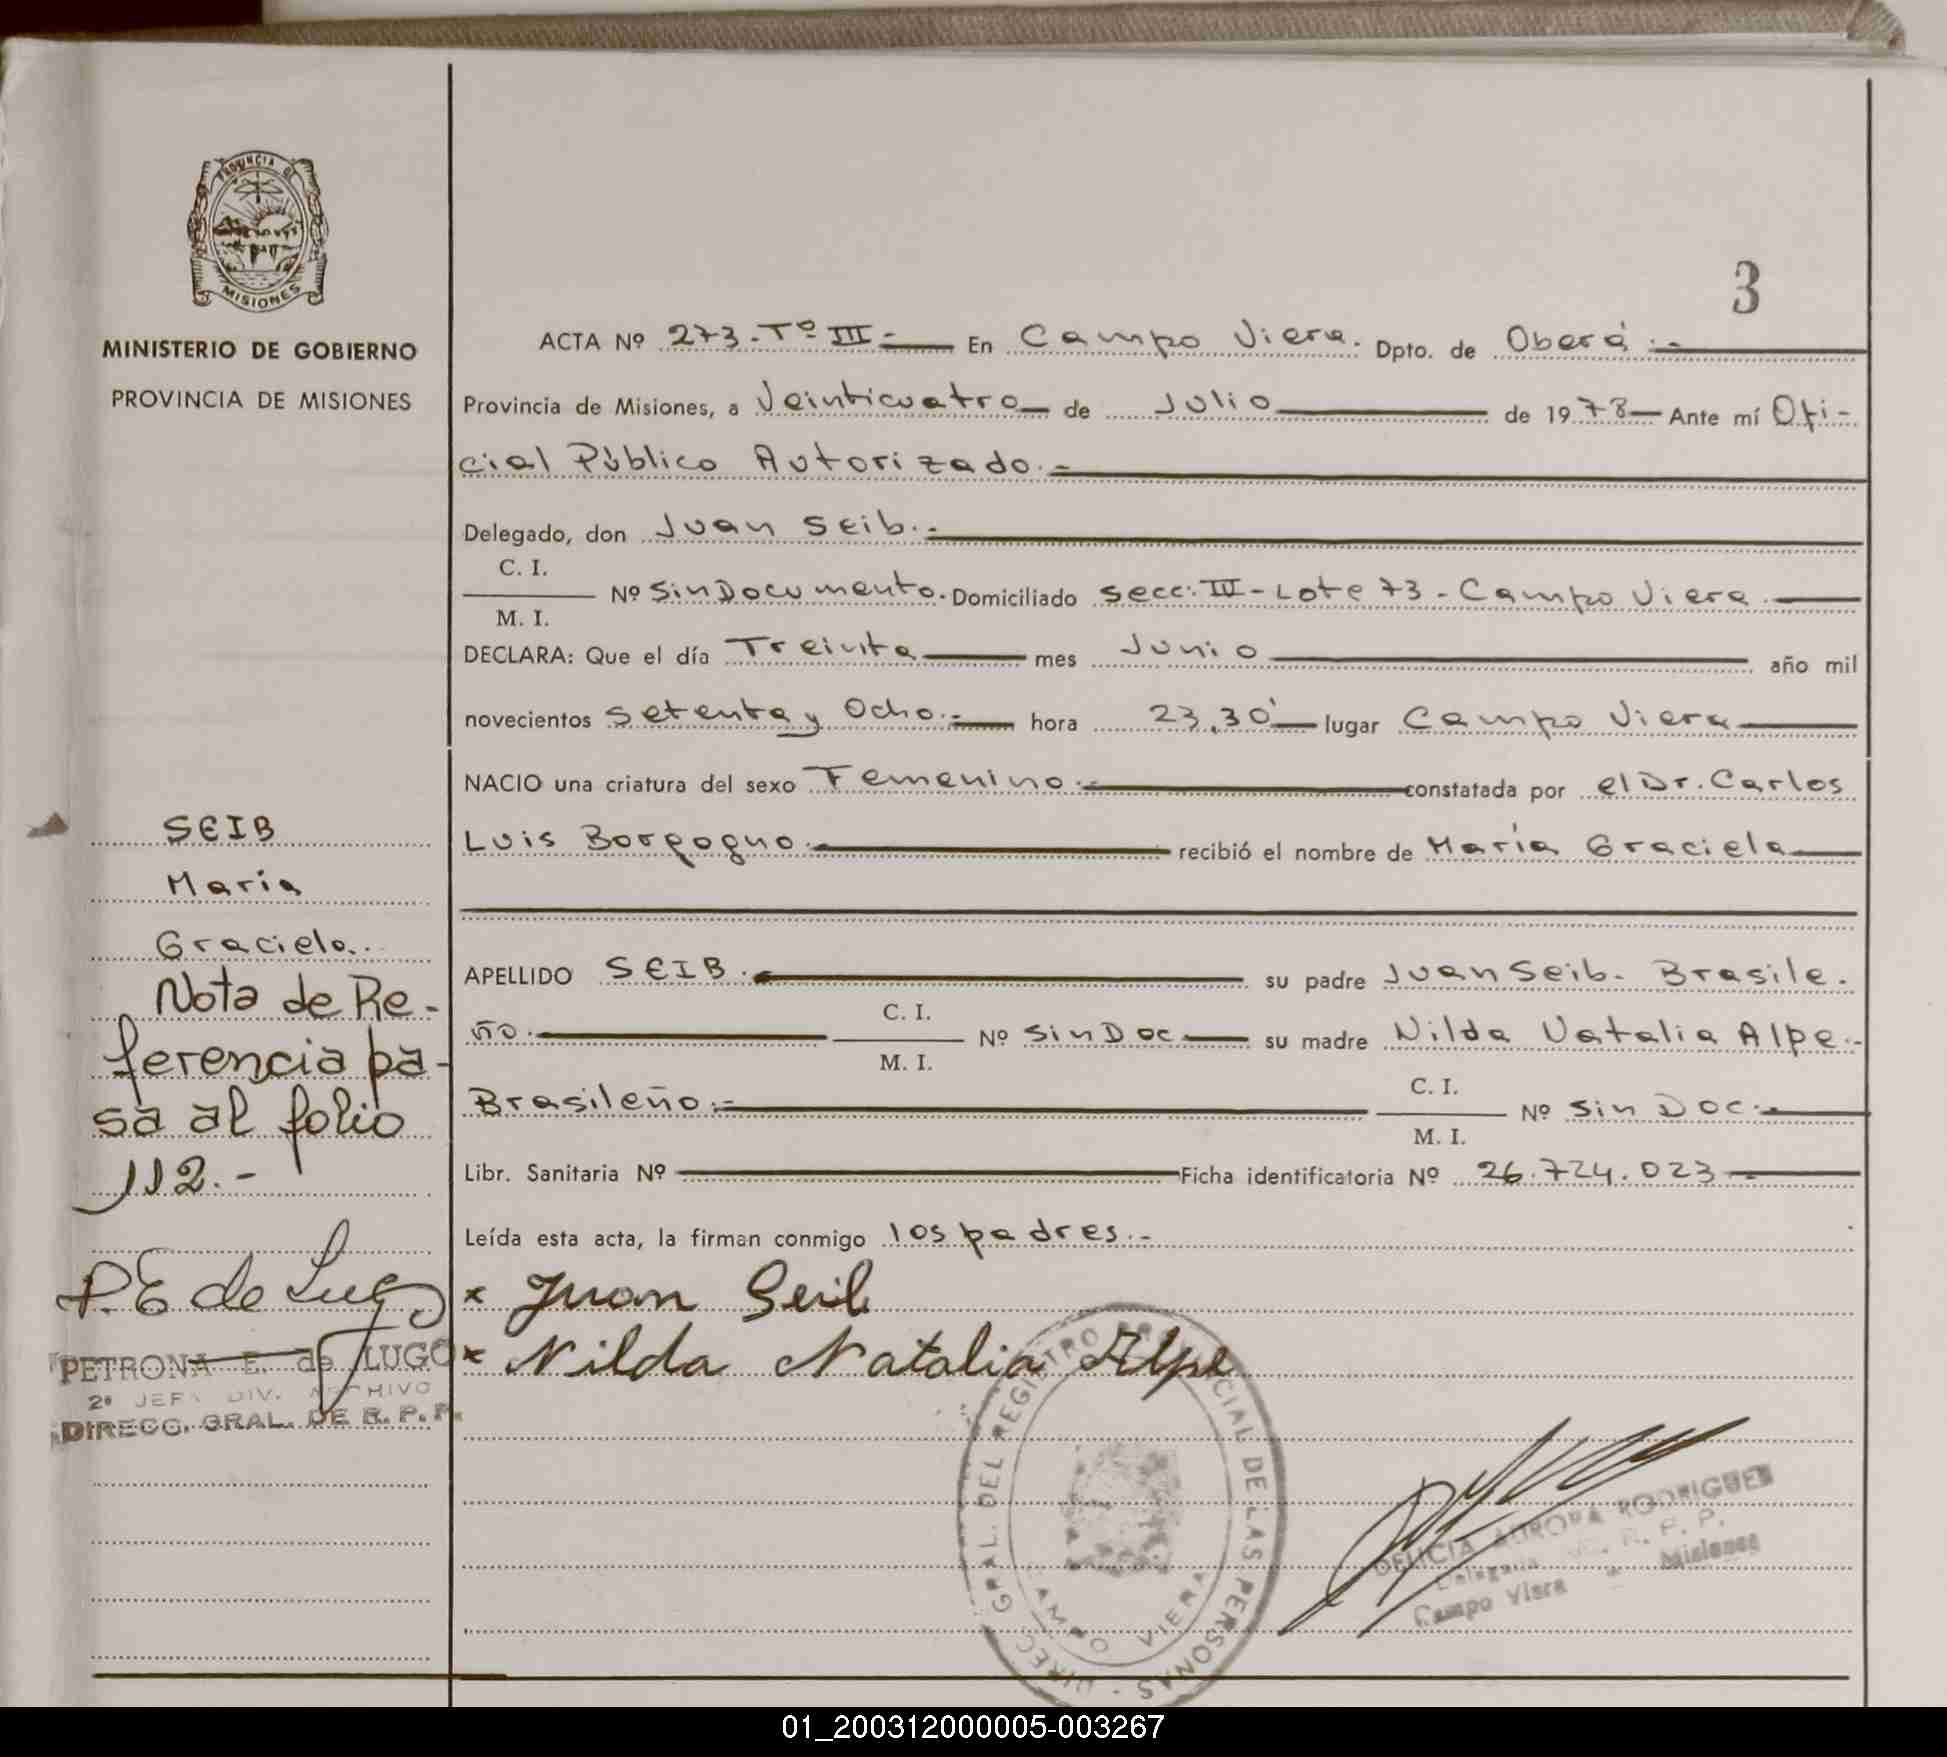 PROVINCIA DE
MISIONES
MINISTERIO DE GOBIERNO
PROVINCIA DE MISIONES
3
ACTA Nº 273. Tº III.- En Campo Viera. Dpto. de Oberá.-
Provincia de Misiones, a Veinticuatro de Julio de 1978 Ante mí Ofi-
cial Público Autorizado.-
Delegado, don Juan Seib.-
C. I.
Nº Sin Documento. Domiciliado Secc: III - Lote 73 - Campo Viera.
M. I.
DECLARA: Que el día Treinta mes Junio año mil
novecientos Setenta y Ocho.- hora 23,30' lugar Campo Viera
NACIO una criatura del sexo Femenino.- constatada por el Dr. Carlos
Luis Borgogno. recibió el nombre de María Graciela
APELLIDO SEIB. su padre Juan Seib. Brasile.
ño. C. I. Nº Sin Doc su madre Nilda Natalia Alpe.-
M. I.
Brasileño.- C. I. Nº Sin Doc.-
M. I.
Libr. Sanitaria Nº Ficha identificatoria Nº 26.724.023
Leída esta acta, la firman conmigo los padres.-
x Juan Seib
x Nilda Natalia Alpe
SEIB
María
Graciela.
Nota de Re-
ferencia pa-
sa al folio
112.-
P. E de Lugo
PETRONA E. de LUGO
2ª JEFA DIV. ARCHIVO
DIRECC. GRAL. DE R. P. P.
DIREC. GRAL. DEL REGISTRO PROVINCIAL DE LAS PERSONAS -
CAMPO VIERA
DELICIA AURORA RODRIGUEZ
Delegada R. P. P.
Campo Viera - Misiones
01_200312000005-003267